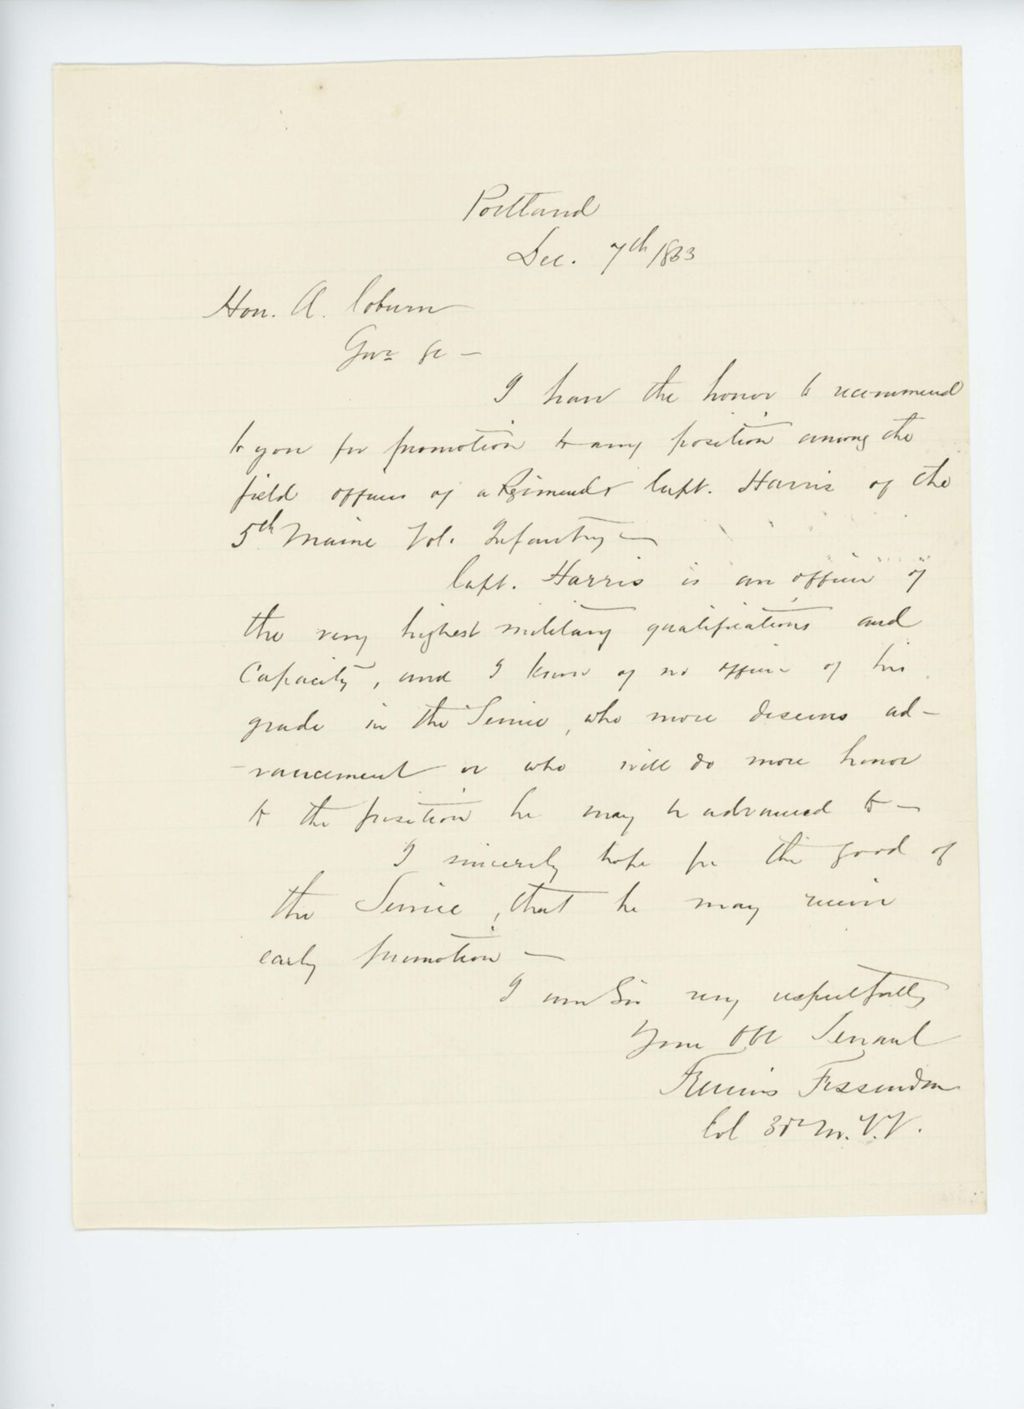 Portland
Dec. 7th 1863
Hon. A. Coburn
Govr &c —
I have the honor to recommend
to you for promotion to any position among the
field officers of a Regiment Capt. Harris of the
5th Maine Vol. Infantry —
Capt. Harris is an officer of
the very highest military qualifications and
Capacity, and I know of no officer of his
grade in the Service, who more deserves ad-
-vancement or who will do more honor
to the position he may be advanced to —
I sincerely hope for the good of
the Service, that he may receive
early promotion —
I am Sir very respectfully
Your Obt Servant
Francis Fessenden
Col 30th M. V. V.